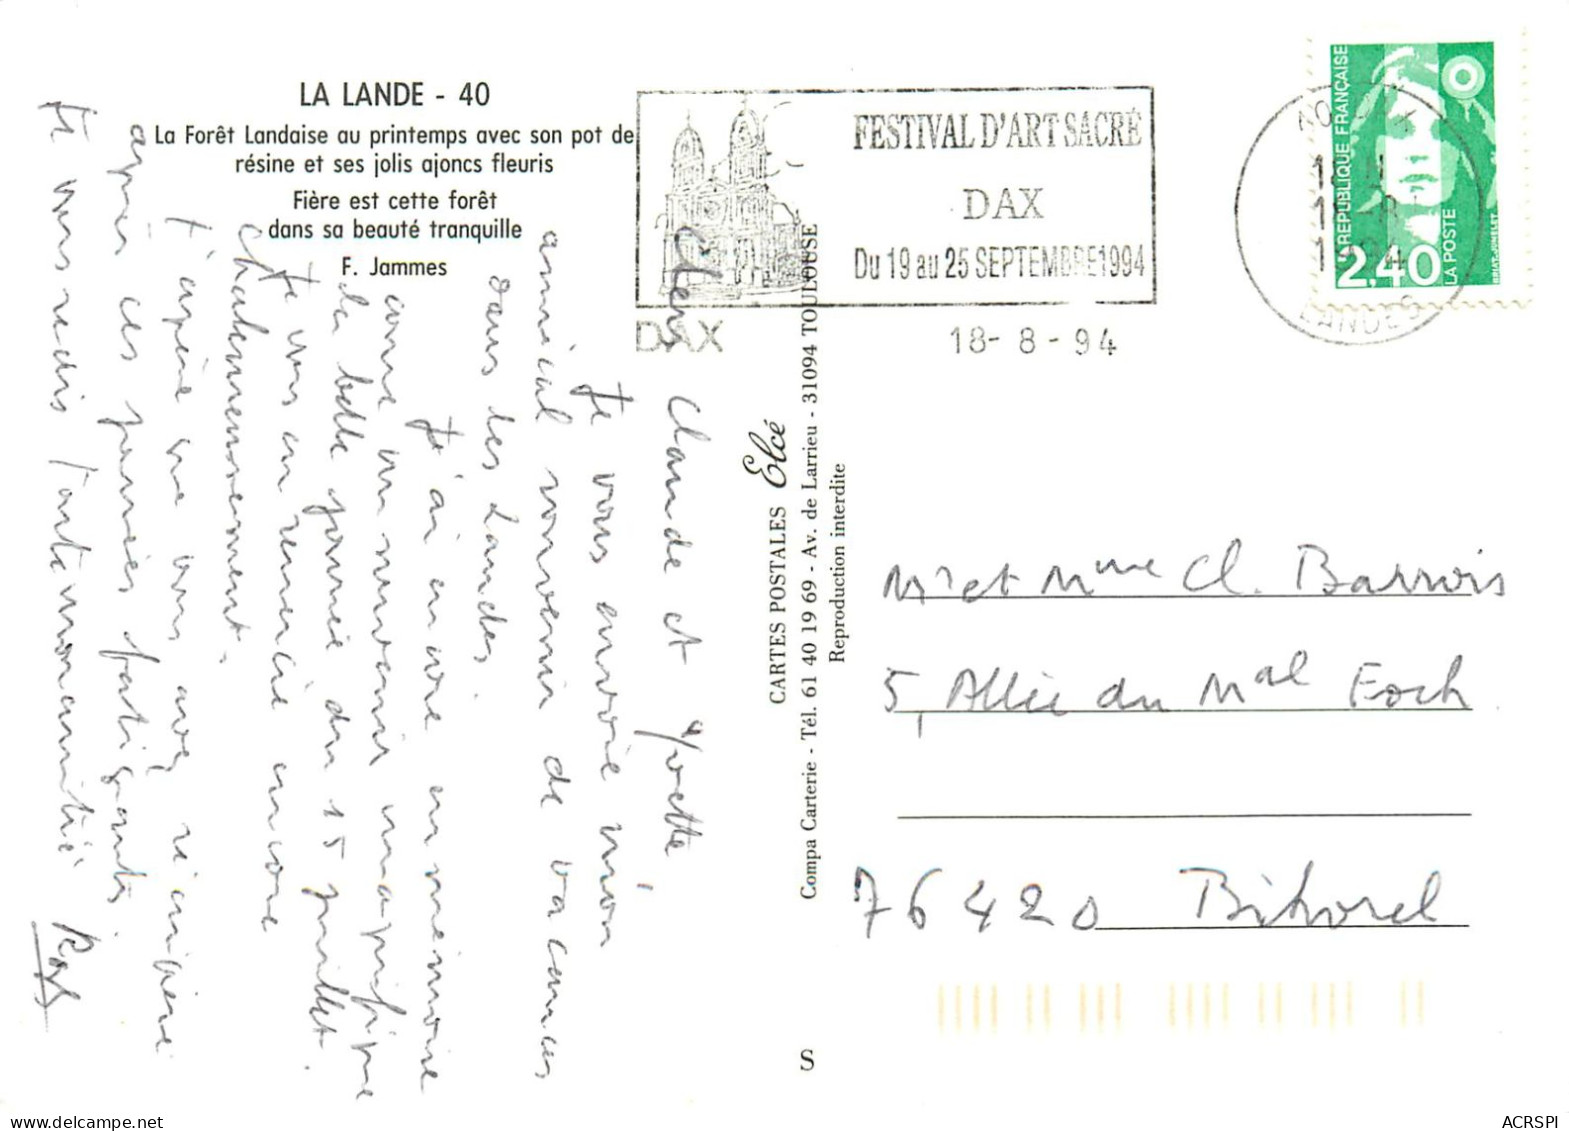 LA LANDE - 40
La Forêt Landaise au printemps avec son pot de
résine et ses jolis ajoncs fleuris
Fière est cette forêt
dans sa beauté tranquille
F. Jammes
Chers Claude et Yvette,
Je vous envoie mon
amical souvenir de vacances
dans les Landes.
J'ai encore en mémoire
comme un souvenir magnifique
la belle journée du 15 juillet.
Je vous en remercie encore
Chaleureusement.
J'espère que vous avez récupéré
après ces journées fatigantes.
Je vous redis toute mon amitié
CARTES POSTALES Elcé
Compa Carterie - Tél. 61 40 19 69 - Av. de Larrieu - 31094 TOULOUSE
Reproduction interdite
S
FESTIVAL D'ART SACRÉ
DAX
Du 19 au 25 SEPTEMBRE 1994
DAX
18- 8 - 94
1994
LANDES
REPUBLIQUE FRANÇAISE
2,40
LA POSTE
BRIAT-JUMELET
Mr et Mme Cl. Barrois
5, Allée du Mal Foch
76420 Bihorel
ACRSPI